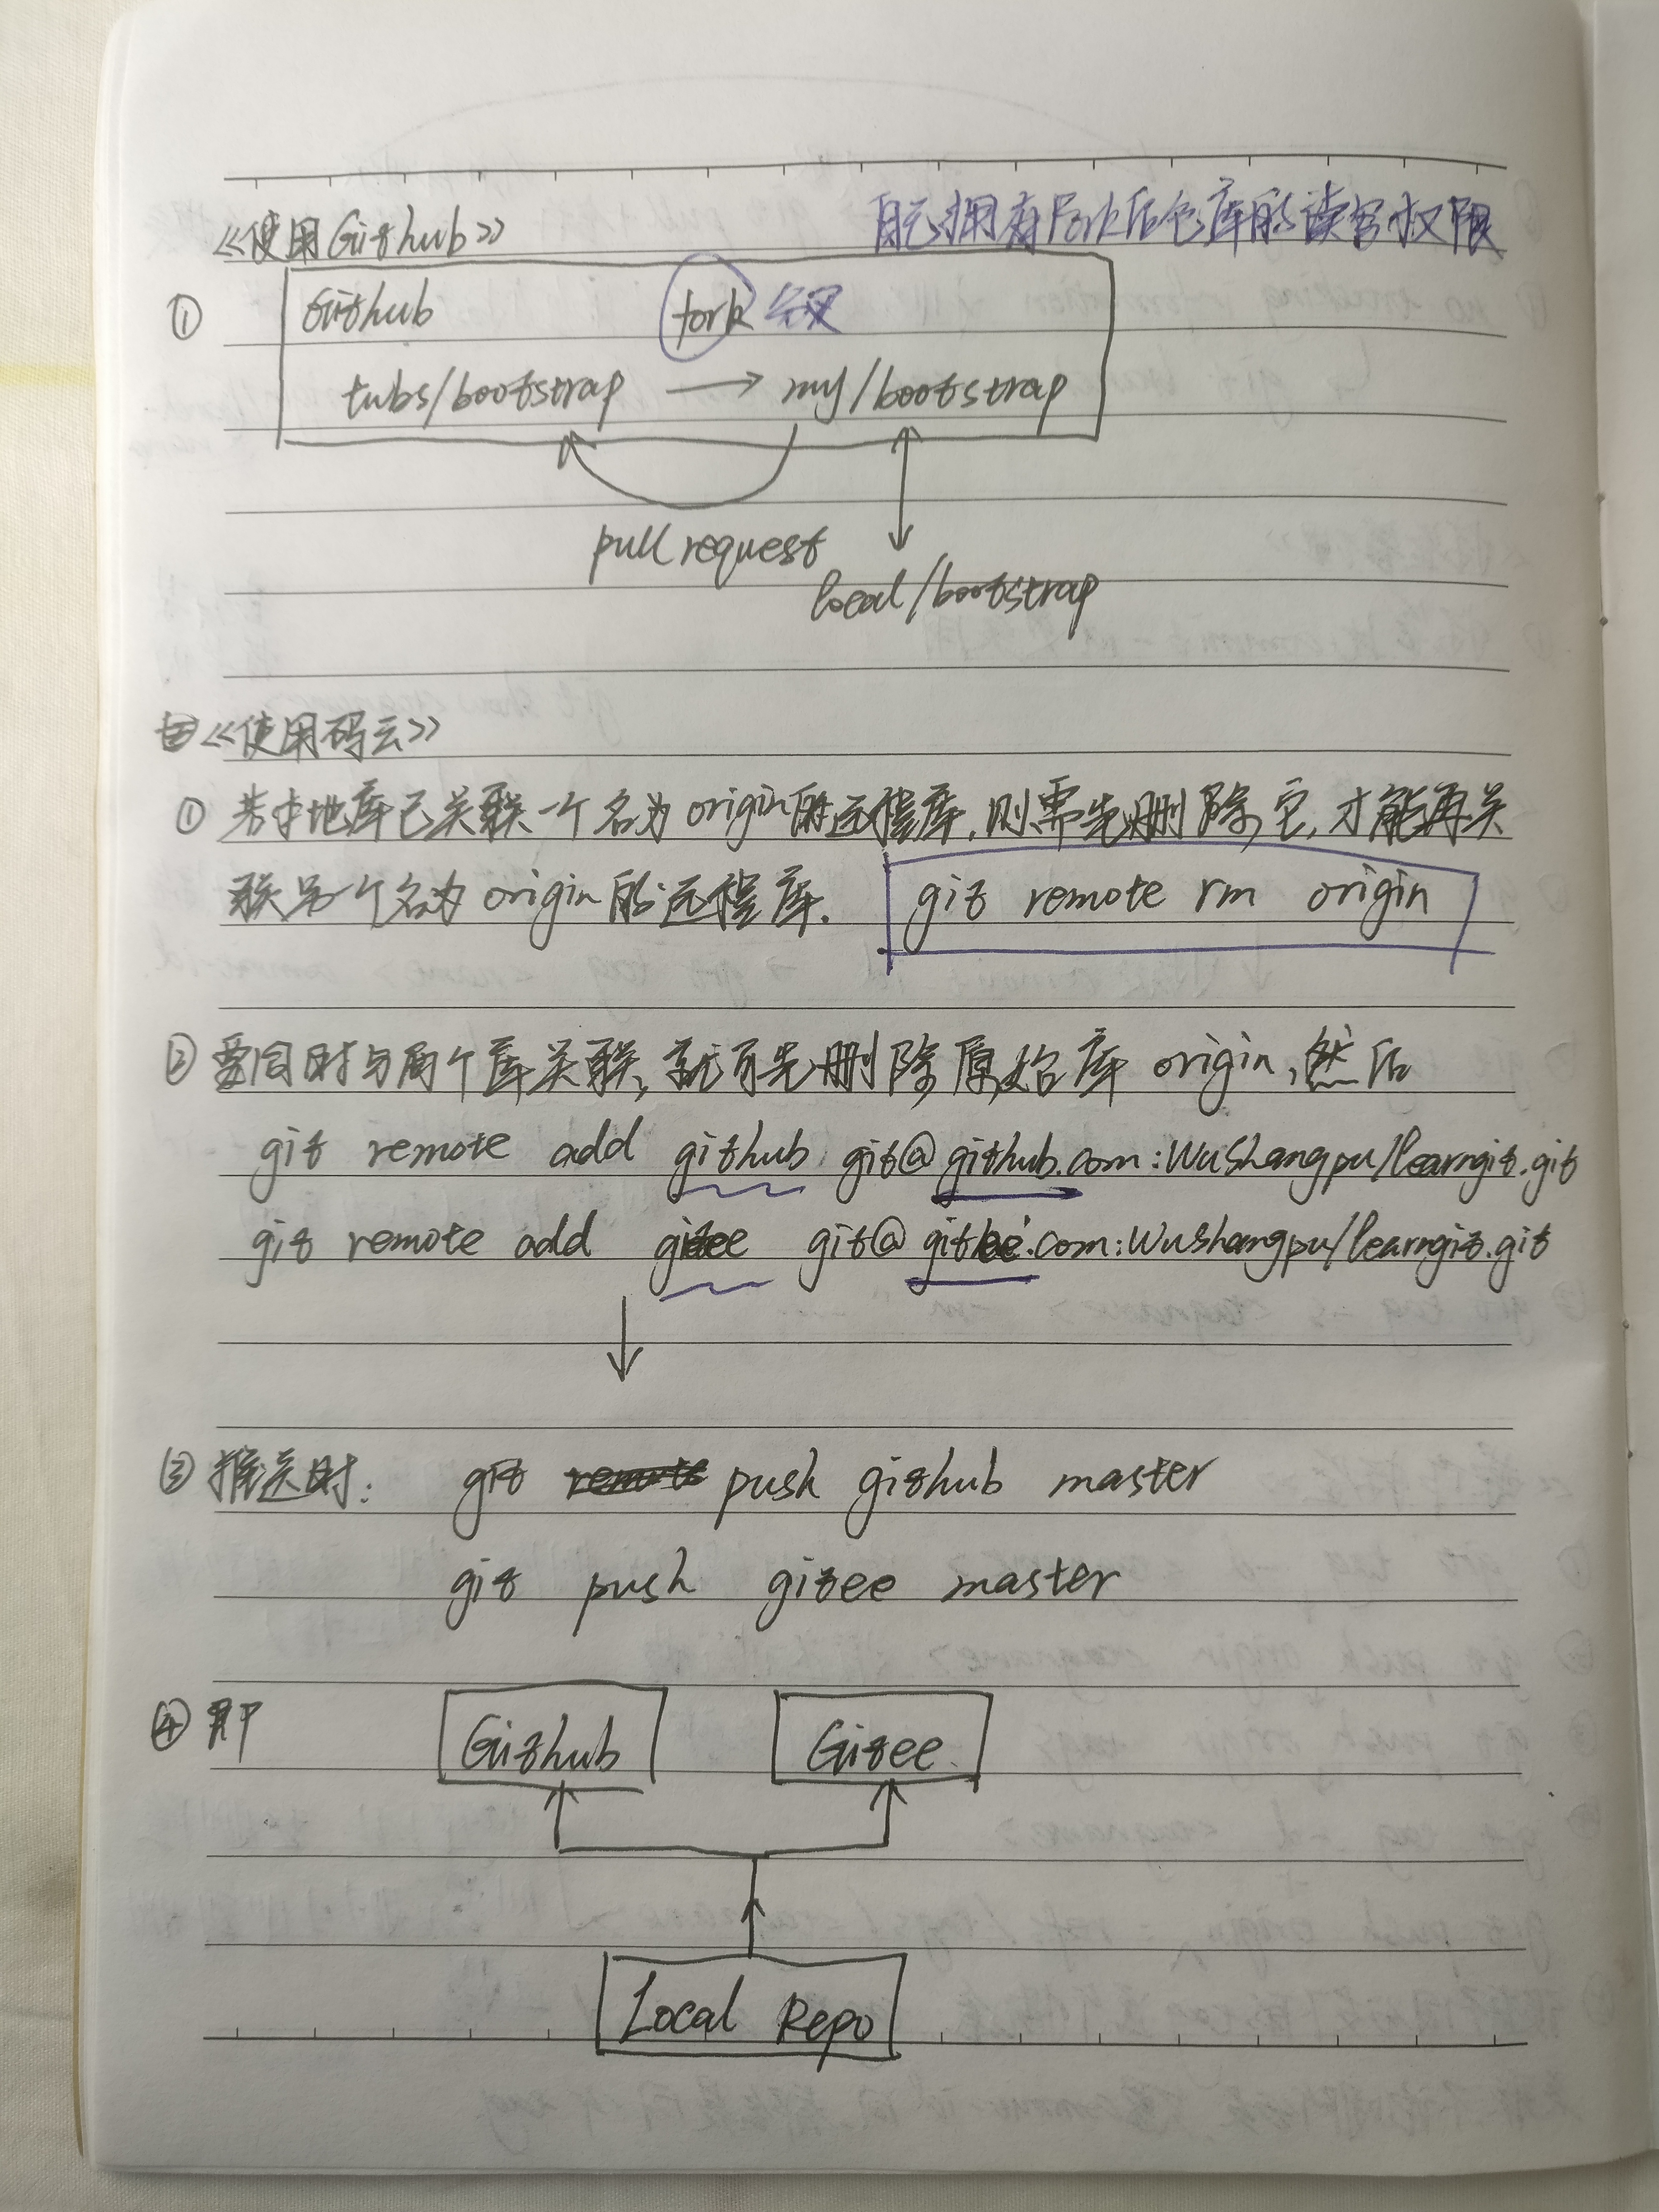 《使用Github》 自己拥有Fork后仓库的读写权限
① Github fork 分叉
tubs/bootstrap → my/bootstrap
pull request
local/bootstrap
《使用码云》
① 若本地库已关联一个名为origin的远程库,则需先删除它,才能再关
联另一个名为origin的远程库. git remote rm origin
② 要同时与两个库关联,就可先删除原始库 origin,然后
git remote add github git@github.com:WuShangpu/learngit.git
git remote add gitee git@gitee.com:WuShangpu/learngit.git
↓
③ 推送时: git push github master
git push gitee master
④ 即 Github Gitee
Local Repo